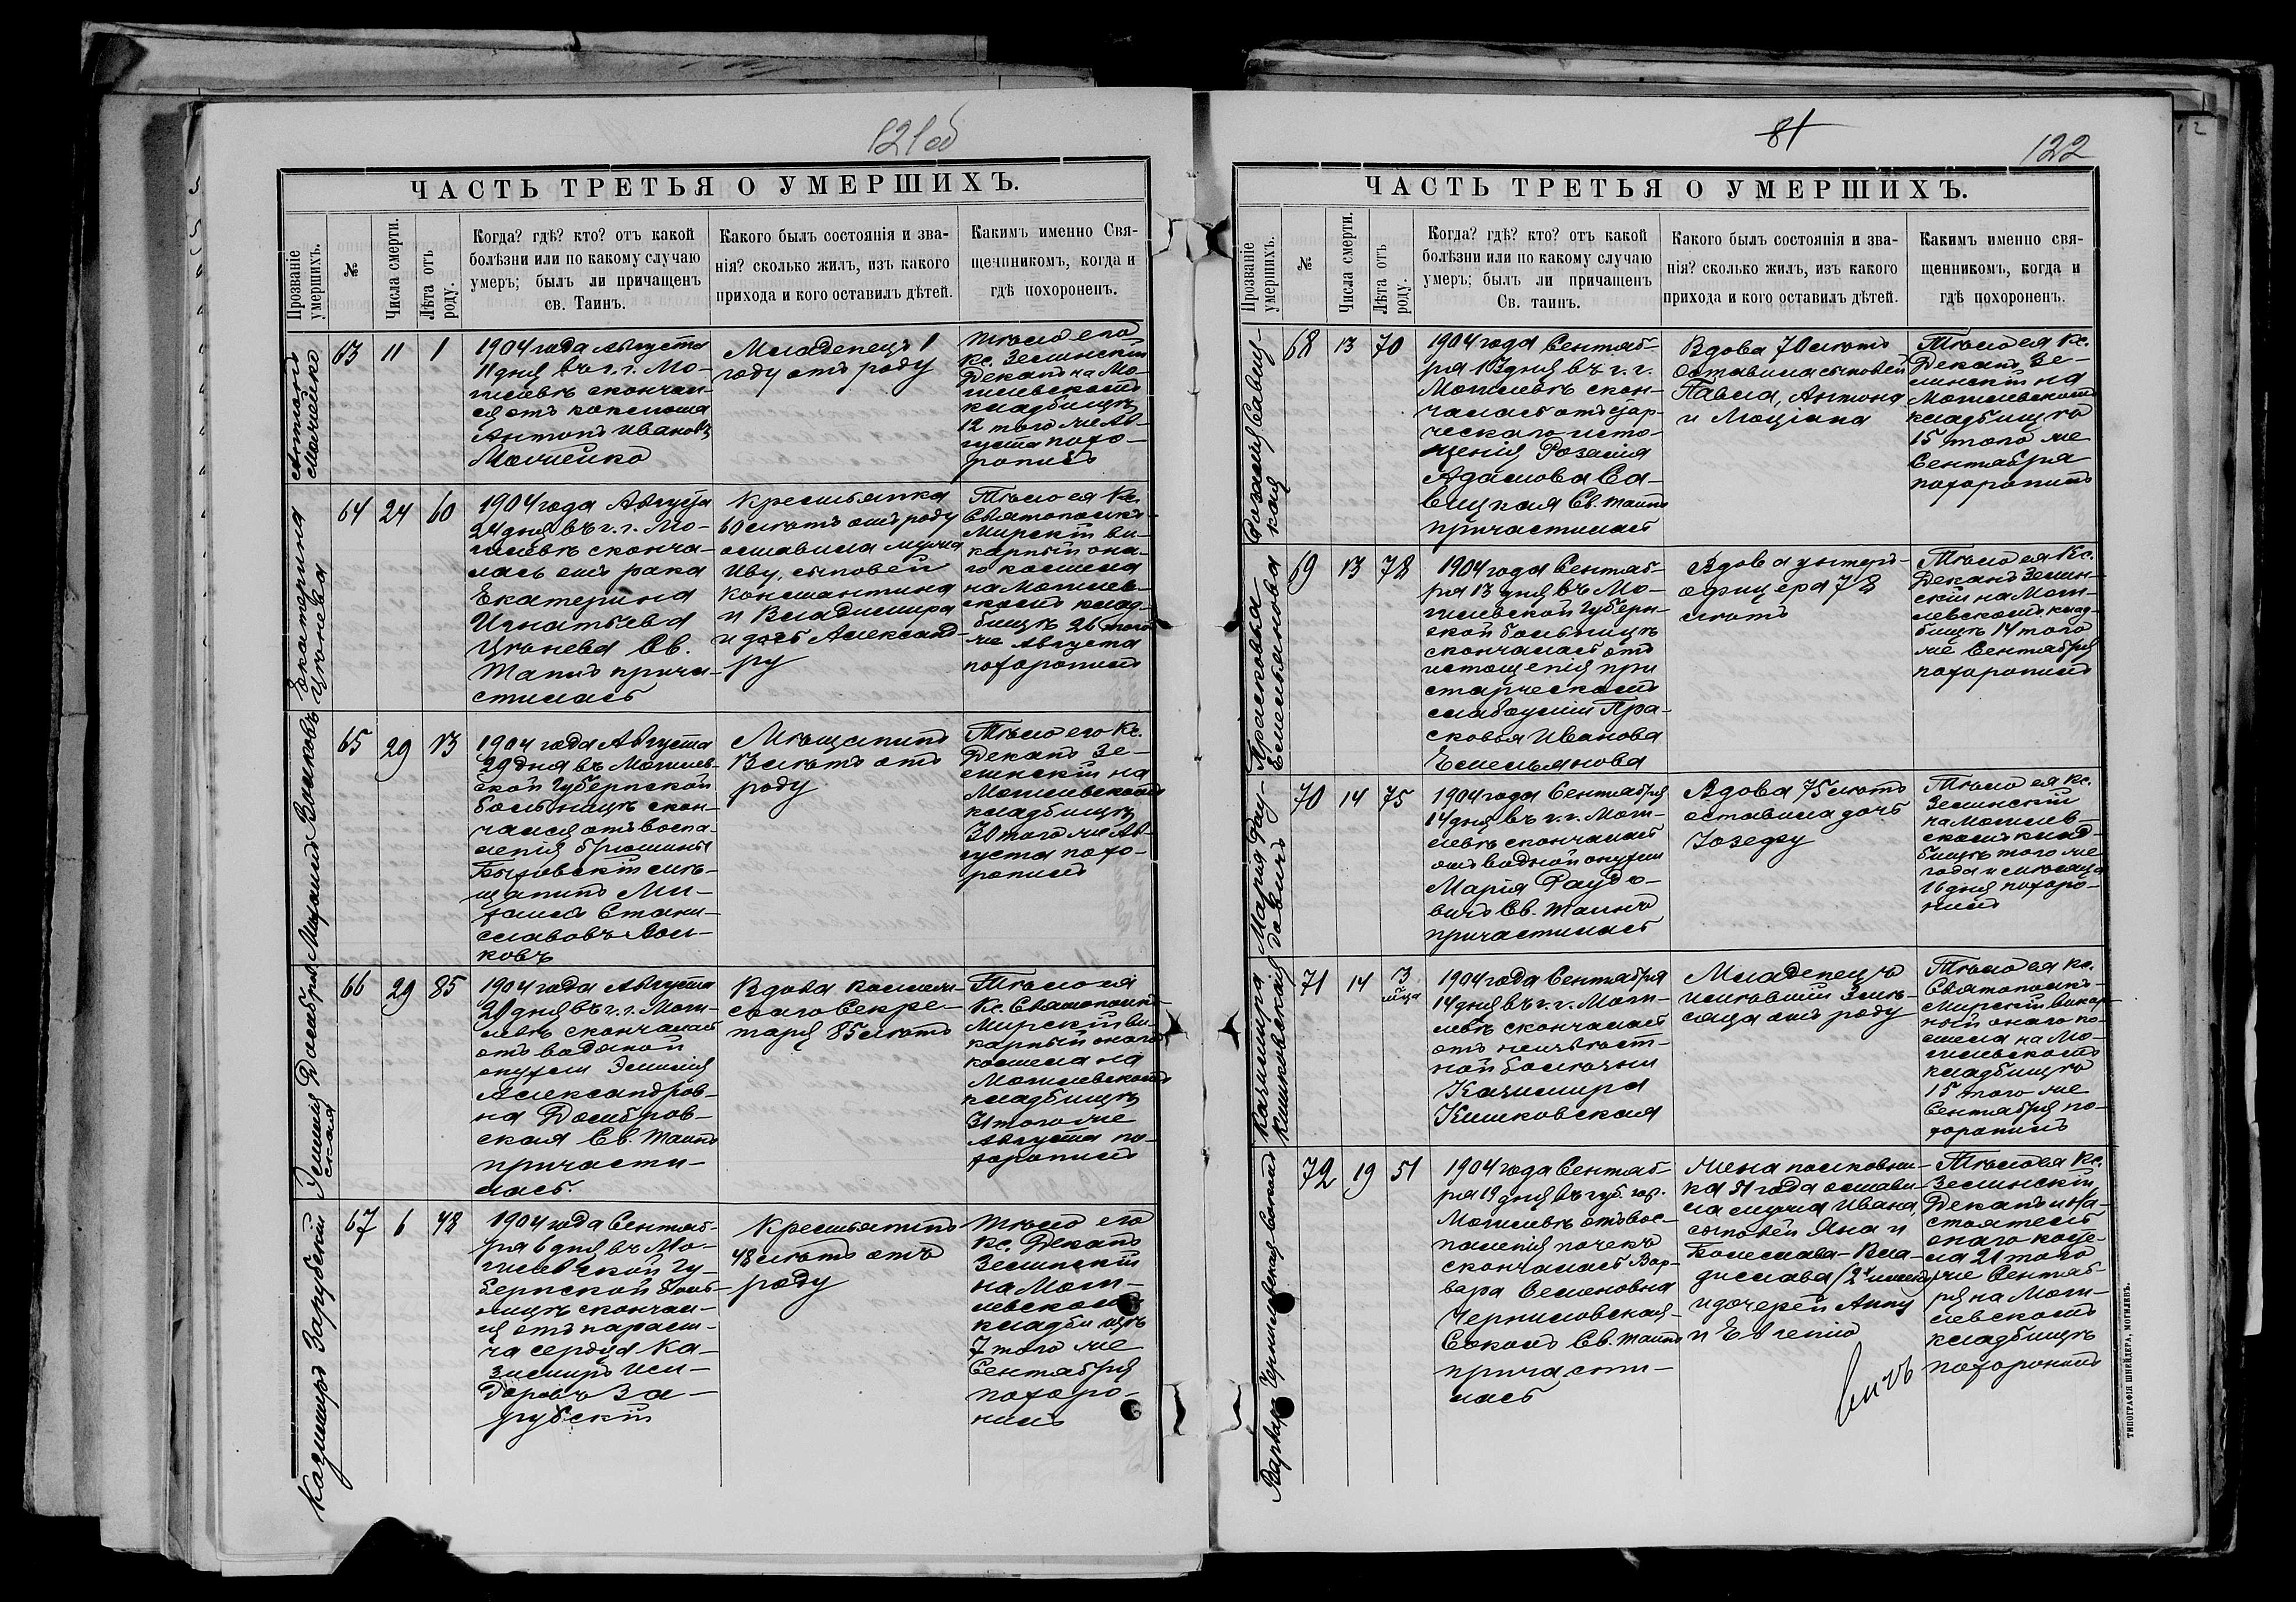 121об
ЧАСТЬ ТРЕТЬЯ О УМЕРШИХЪ.
Прозваніе умершихъ.
№
Числа смерти.
Лѣта отъ роду.
Когда? гдѣ? кто? отъ какой
болѣзни или по какому случаю
умеръ; былъ ли причащенъ
св. Таинъ.
Какого былъ состоянія и зва-
нія? сколько жилъ, изъ какого
прихода и кого оставилъ дѣтей.
Какимъ именно Свя-
щенникомъ, когда и
гдѣ похороненъ.
Антонъ
63
11
1
1904 года Августа
11 дня въ г. г. Мо-
гилевѣ скончал-
ся отъ коклюша
Антонъ Ивановъ
Младенецъ 1
году отъ роду
Тѣло его
Кс. Зелинскій
Деканъ на Мо-
гилевскомъ
кладбищѣ
12 того же Ав-
густа похо-
ронилъ
Екатерина
64
24
60
1904 года Августа
24 дня въ г. г. Мо-
гилевѣ сконча-
лась отъ рака
Екатерина
Игнатьева
Св.
Таинъ прича-
стилась
Крестьянка
60 лѣтъ отъ роду
оставила мужа
Иву, сыновей
Константина
и Владимира
и дочь Александ-
ру
Тѣло ея Кс.
Святополкъ-
Мирскій ви-
карный она-
го костела
на Могилев-
скомъ клад-
бищѣ 26 того
же Августа
похоронилъ
Михаилъ Волковъ
65
29
13
1904 года Августа
29 дня въ Могилев-
ской Губернской
больницѣ скон-
чался отъ воспа-
ленія брюшины
Быховскій мѣ-
щанинъ Ми-
хаилъ Стани-
славовъ Вол-
ковъ
Мѣщанинъ
13 лѣтъ отъ
роду
Тѣло его Кс.
Деканъ Зе-
линскій на
Могилевскомъ
кладбищѣ
30 того же Ав-
густа похо-
ронилъ
Эмилія Домбров-
ская
66
29
85
1904 года Августа
29 дня въ г. г. Моги-
левѣ скончалась
отъ водяной
опухли Эмилія
Александров-
на Домбров-
ская Св. Таинъ
причасти-
лась.
Вдова Коллеж-
скаго Секре-
таря 85 лѣтъ
Тѣло ея
Кс. Святополкъ-
Мирскій ви-
карный онаго
костела на
Могилевскомъ
кладбищѣ
31 того же
Августа по-
хоронилъ
Казимиръ Зарубскій
67
6
48
1904 года Сентяб-
ря 6 дня въ Мо-
гилевской Гу-
бернской боль-
ницѣ скончал-
ся отъ парали-
ча сердца Ка-
зимиръ Иси-
доровъ За-
рубскій
Крестьянинъ
48 лѣтъ отъ
роду
Тѣло его
Кс. Деканъ
Зелинскій
на Моги-
левскомъ
кладбищѣ
7 того же
Сентября
похоро-
нилъ
81
122
ЧАСТЬ ТРЕТЬЯ О УМЕРШИХЪ.
Прозваніе умершихъ.
№
Числа смерти.
Лѣта отъ роду.
Когда? гдѣ? кто? отъ какой
болѣзни или по какому случаю
умеръ; былъ ли причащенъ
Св. таинъ.
Какого былъ состоянія и зва-
нія? сколько жилъ, изъ какого
прихода и кого оставилъ дѣтей.
Какимъ именно свя-
щенникомъ, когда и
гдѣ похороненъ.
Розалія Савиц-
кая
68
13
70
1904 года Сентяб-
ря 13 дня въ г. г.
Могилевѣ скон-
чалась отъ стар-
ческаго исто-
щенія Розалія
Адамова Са-
вицкая Св. Таинъ
причастилась
Вдова 70 лѣтъ
Оставила сыновей
Павла, Антона
и Люціана
Тѣло ея Кс.
Деканъ Зе-
линскій на
Могилевскомъ
кладбищѣ
15 того же
Сентября
похоронилъ
Прасковья
Емельянова
69
13
78
1904 года Сентяб-
ря 13 дня въ Мо-
гилевской Губерн-
ской больницѣ
скончалась отъ
истощенія при
старческомъ
слабоуміи Пра-
сковья Иванова
Емельянова
Вдова унтеръ-
офицера 78
лѣтъ
Тѣло ея Кс.
Деканъ Зелин-
скій на Моги-
левскомъ клад-
бищѣ 14 того
же Сентября
похоронилъ
Марія Рау-
довичъ
70
14
75
1904 года Сентября
14 дня въ г. г. Моги-
левѣ скончалась
отъ водяной опухли
Марія Раудо-
вичъ Св. Таинъ
причастилась
Вдова 75 лѣтъ
оставила дочь
Іозефу
Тѣло ея Кс.
Зелинскій
на Могилев-
скомъ клад-
бищѣ того же
года и мѣсяца
16 дня похоро-
нилъ
Казимира
Кишковская
71
14
3
мѣсяца
1904 года Сентября
14 дня въ г. г. Моги-
левѣ скончалась
отъ неизвѣст-
ной болѣзни
Казимира
Кишковская
Младенецъ
имѣвшій 3 мѣ-
сяца отъ роду
Тѣло ея Кс.
Святополкъ-
Мирскій викар-
ный онаго ко-
стела на Мо-
гилевскомъ
кладбищѣ
15 того же
Сентября по-
хоронилъ
Варвара Черниловская Соколъ
72
19
51
1904 года Сентяб-
ря 19 дня въ губ. гор.
Могилевѣ отъ вос-
паленія почекъ
скончалась Вар-
вара Семеновна
Черниловская-
Соколъ Св. Таинъ
причасти-
лась
Жена полковни-
ка 51 года остави-
ла мужа Ивана
сыновей Яна и
Болеслава-Вла-
дислава (2хъ именъ)
и дочерей Анну
и Евгенію
Тѣло ея Кс.
Зелинскій
Деканъ и На-
стоятель
онаго косте-
ла 21 того
же Сентяб-
ря на Моги-
левскомъ
кладбищѣ
похоронилъ
вичъ
ТИПОГРАФІЯ ШНЕЙДЕРА, МОГИЛЕВЪ.